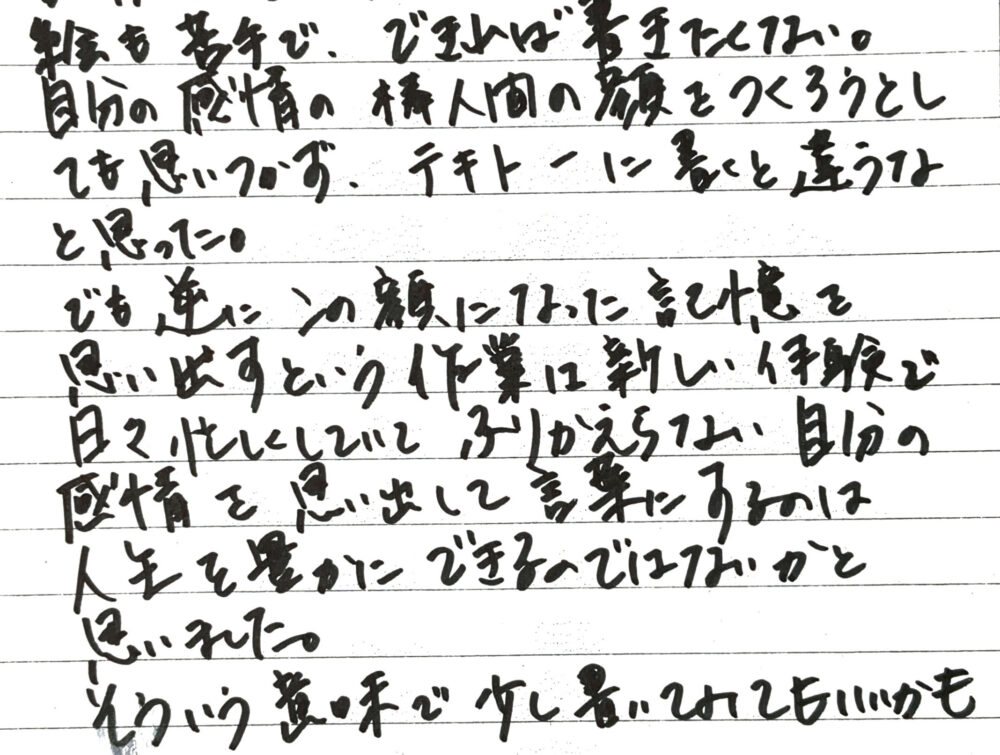 絵も苦手で、できれば書きたくない。
自分の感情の棒人間の顔をつくろうとし
ても思いつかず、テキトーに書くと違うな
と思った。
でも逆にこの顔になった記憶を
思い出すという作業は新しい体験で
日々忙しくしていてふりかえらない自分の
感情を思い出して言葉にするのは
人生を豊かにできるのではないかと
思いました。
そういう意味で少し書いてみてもいいかも